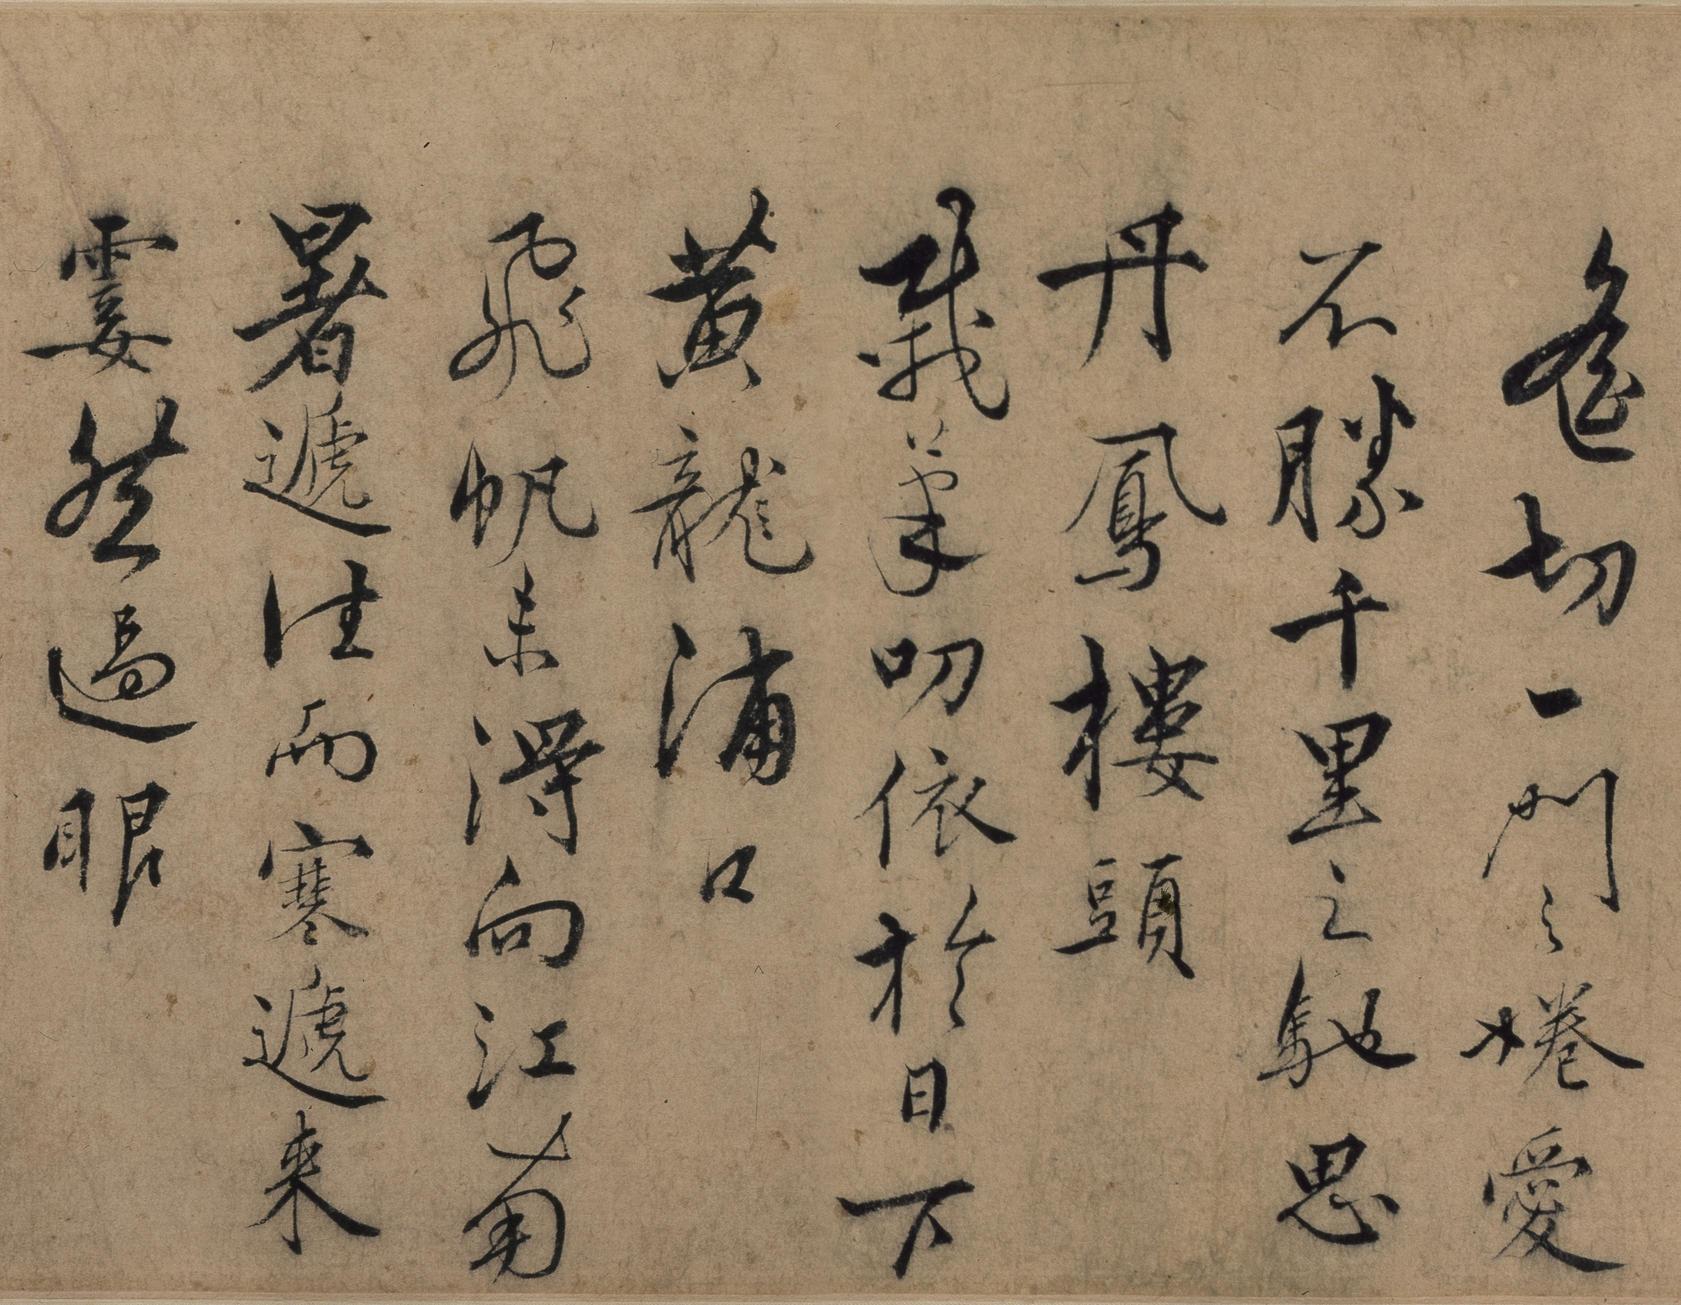 遙切一門之惓愛
不勝千里之馳思
丹鳳樓頭
載筆叨依於日下
黃龍浦口
飛帆未得向江南
暑遞往而寒遞来
霎然過眼